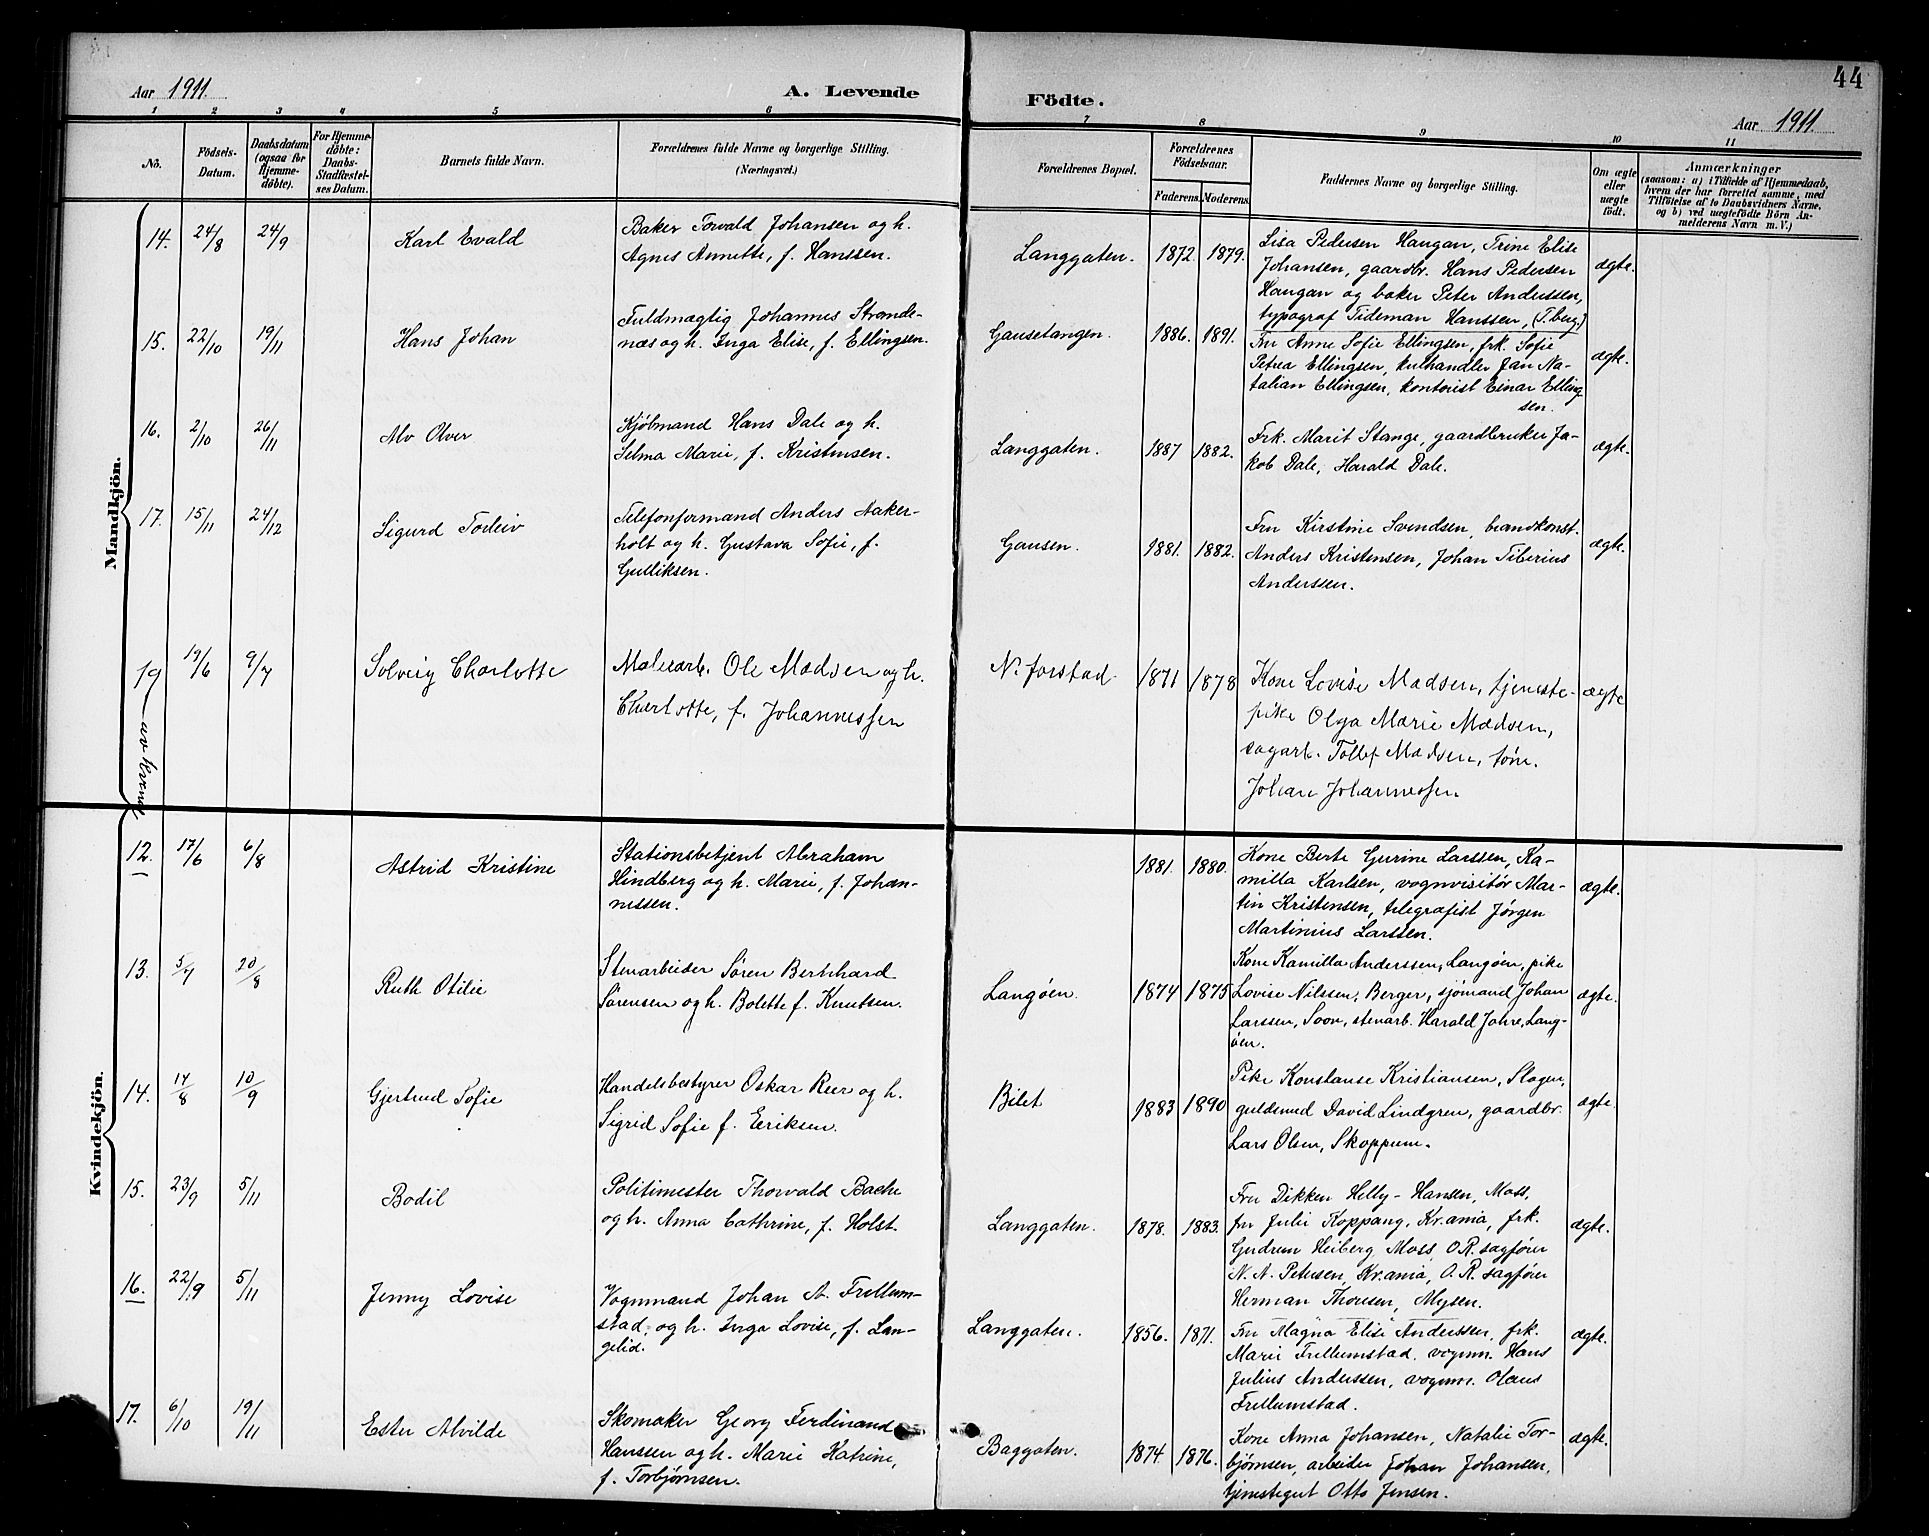 44
Aar 1911.
A. Levende
Födte.
Aar 1911
1 2 3 4 5 6
7 8 9 10 11
No.
Födsels-
Datum.
Daabsdatum
(ogsaa for
Hjemme-
döbte).
For Hjemme-
döbte:
Daabs-
Stadfæstel-
ses Datum.
Barnets fulde Navn.
Forældrenes fulde Navne og borgerlige Stilling.
(Næringsvei.)
Forældrenes Bopæl.
Forældrenes
Födselsaar.
Faderens. Moderens.
Faddernes Navne og borgerlige Stilling.
Om ægte
eller
uægte
födt.
Anmærkninger
(saasom: a) i Tilfælde af Hjemmedaab,
hvem der har forrettet samme, med
Tilföielse af to Daabsvidners Navne,
og b) ved uægtefödte Börn An-
melderens Navn m. V.)
Mandkjön.
14. 24/8 24/9 Karl Evald
Baker Torvald Johansen og h.
Agnes Annette, f. Hanssen.
Langgaten. 1872. 1879.
Lisa Pedersen Haugan, Trine Elise
Johansen, gaardbr. Hans Pedersen
Haugan og baker Peter Anderssen,
typograf Tideman Hanssen, (T.berg.)
ægte.
15. 22/10 19/11 Hans Johan
Fuldmægtig Johannes Strande-
næs og h. Inga Elise, f. Ellingsen.
Gausetangen. 1886. 1891.
Fru Anne Sofie Ellingsen, frk. Sofie
Petrea Ellingsen, kulhandler Jan Na-
talian Ellingsen, kontorist Einar Elling
sen.
ægte.
16. 2/10 26/11 Alv Olver
Kjølmand Hans Dale og h.
Selma Marie, f. Kristensen.
Langgaten. 1887 1882.
Frk. Marit Stange, gaardbruker Ja-
kob Dale, Harald Dale.
ægte.
17. 15/11 24/12 Sigurd Torleiv
Telefonformand Anders Aaker-
holt og h. Gustava Sofie, f.
Gulliksen.
Gausen. 1881. 1882.
Fru Kirstine Svendsen, brandkonst.
Anders Kristensen, Johan Tiberius
Anderssen.
ægte.
19 av kvindekj. 19/6 9/7 Solveig Charlotte
Malerarb. Ole Madsen og h.
Charlotte, f. Johannessen
N. forstad. 1871 1878
Kone Lovise Madsen, tjeneste-
pike Olga Marie Madsen,
sagarb. Tollef Madsen, tøm.
Johan Johannessen
ægte
Kvindekjön.
12. 17/6 6/8 Astrid Kristine
Stationsbetjent Abraham
Hindberg og h. Marie, f. Johan-
nessen.
1881. 1880.
Kone Berte Gurine Larssen, Ka-
milla Karlsen, vognvisitör Mar-
tin Kristensen, telegrafist Jørgen
Martinius Larssen.
ægte.
13. 5/7 20/8 Ruth Otilie
Stenarbeider Søren Bernhard
Sørensen og h. Bolette f. Knutsen.
Langöen. 1874 1875
Kone Kamilla Anderssen, Langøen, pike
Lovise Nilssen, Berger, sjömand Johan
Larssen, Soon, stenarb. Harald Jahre, Lang-
öen.
ægte.
14. 14/8 10/9 Gjertrud Sofie
Handelsbestyrer Oskar Reer og h.
Sigrid Sofie f. Eriksen.
Bilet 1883 1890
Pike Konstanse Kristiansen, Slagen,
guldsmed David Lindgren, gaardbr.
Lars Olsen, Skoppum.
ægte.
15. 23/9 5/11 Bodil
Politimester Thorvald Bache
og h. Anna Cathrine, f. Holst.
Langgaten. 1878. 1883.
Fru Dikken Helly-Hansen, Moss,
fru Julie Koppang, Kr.ania, frk.
Gudrun Heiberg, Moss, O.R. sagfører
N. A. Petersen, Kr.ania, O.R. sagfører
Herman Thoresen, Mysen.
ægte.
16. 22/9 5/11 Jenny Lovise
Vognmand Johan A. Frellum-
stad, og h. Inga Lovise, f. Lan-
gelid.
Langgaten. 1856. 1871.
Fru Magna Elise Anderssen, frk.
Marie Frellumstad, vognm. Hans
Julius Anderssen, vognm. Olaus
Frellumstad.
ægte.
17. 6/10 19/11 Ester Alvilde
Skomaker Georg Ferdinand
Hanssen og h. Marie Katrine,
f. Torbjørnsen.
Baggaten. 1874. 1876.
Kone Anna Johansen, Natalie Tor-
bjørnsen, arbeider Johan Johansen,
tjenestegut Otto Jensen.
ægte.